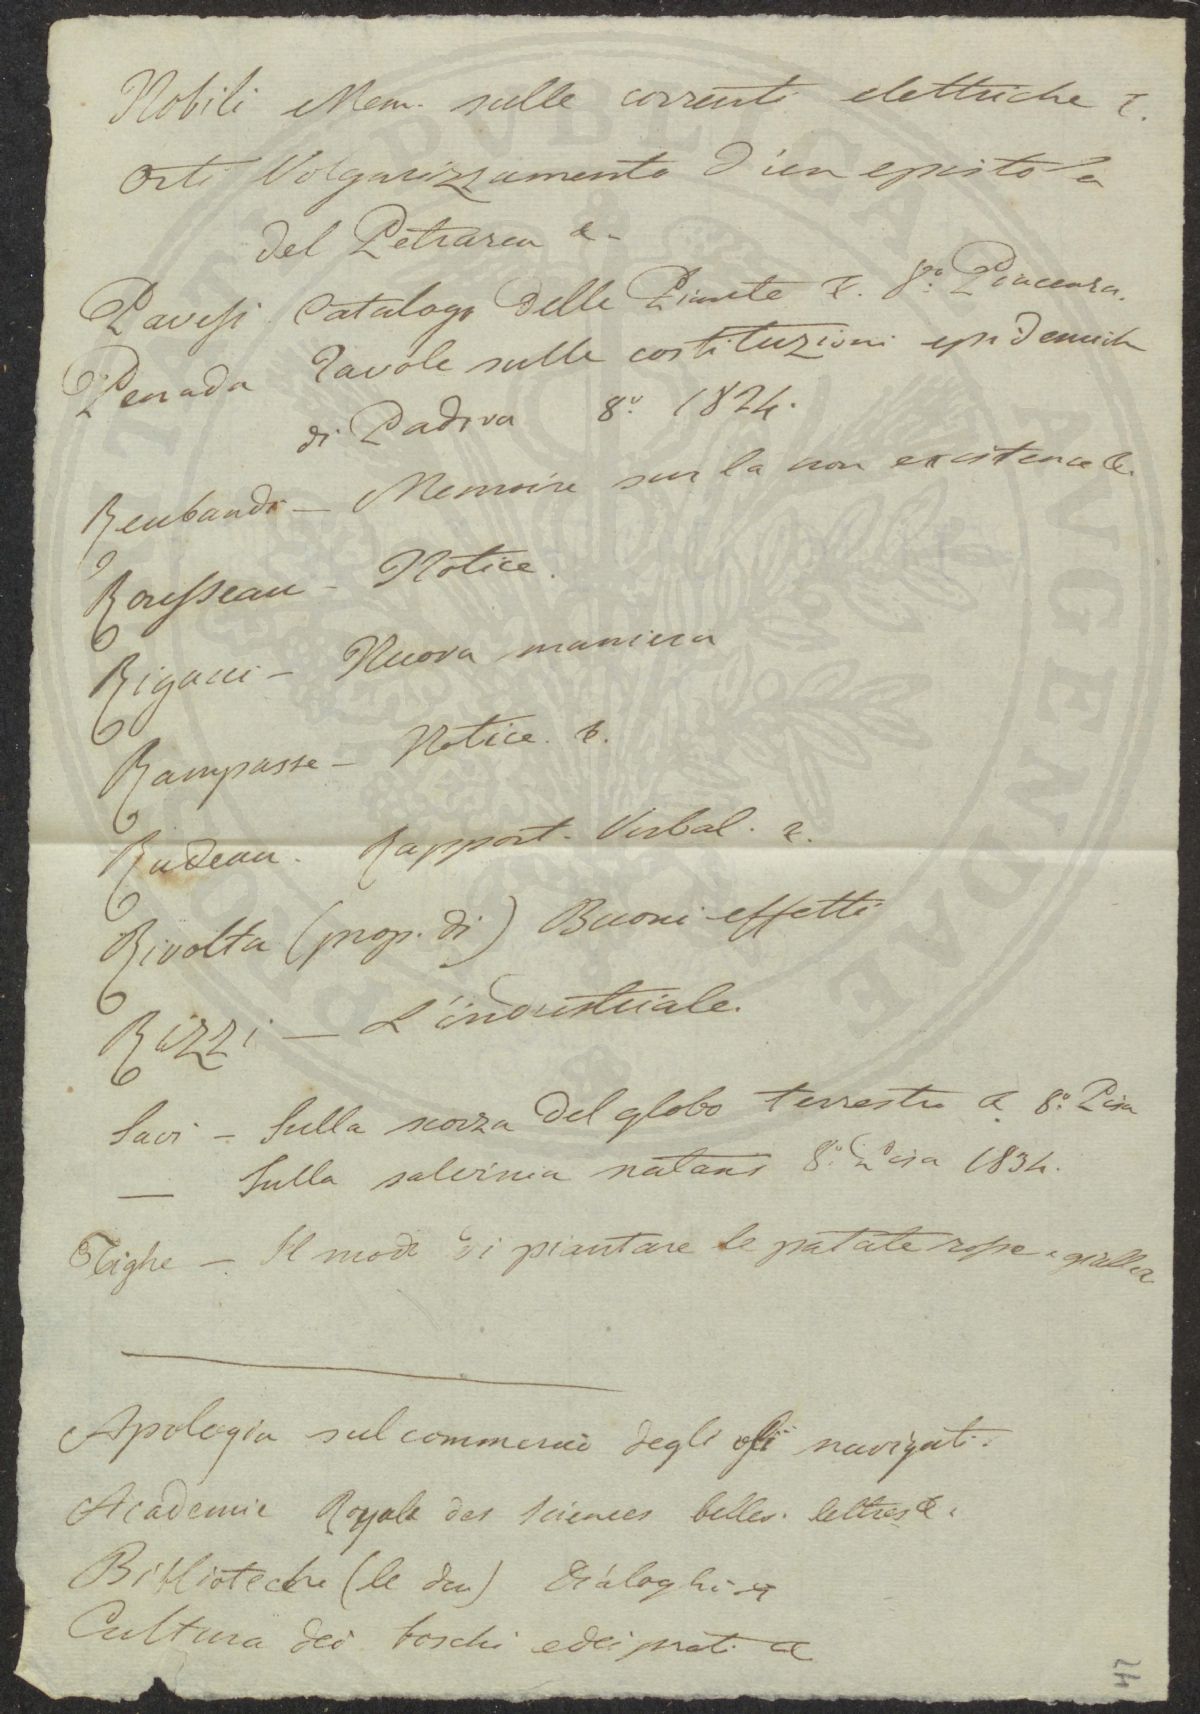 Nobili Mem. sulle correnti elettriche &.
Orti Volgarizzamento d'un epistola
del Petrarca &-
Pavesi Catalogo delle Piante &. 8.º Piacenza.
Penada Tavole sulle costituzioni epidemich
di Padova 8.º 1824.
Reubaudi — Memoire sur la non existence &.
Rousseau - Notice.
Rigacci - Nuova maniera
Rampasse - Notice. &.
Rudeau. Rapport. Verbal. &.
Rivolta (prop. di) Buoni effetti
Rizzi — L'industriale.
Savi - Sulla scorza del globo terrestre & 8.º Pisa
— Sulla salvinia natans 8.º Pisa 1834.
Tighe - Il modo di piantare le patate rosse e gialle &
Apologia sul commercio degli olii navigati.
Academie Royale des Sciences belles. lettres &.
Biblioteche (le due) Dialoghi &
Cultura dei boschi e dei prati &